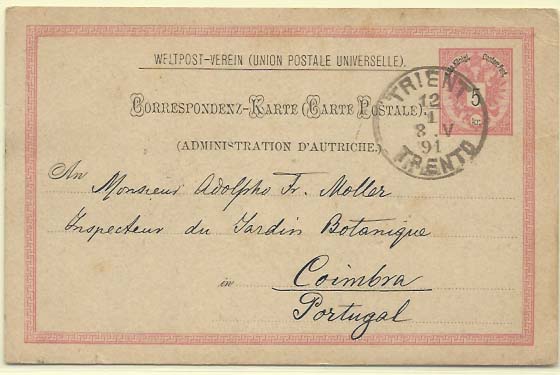 WELTPOST-VEREIN (UNION POSTALE UNIVERSELLE).
CORRESPONDENZ-KARTE (CARTE POSTALE).
(ADMINISTRATION D'AUTRICHE.)
5
kr.
TRIENT
12
1
8 V
91
TRENTO
An Monsieur Adolpho Fr. Moller
Inspecteur du Jardin Botanique
in Coimbra
Portugal